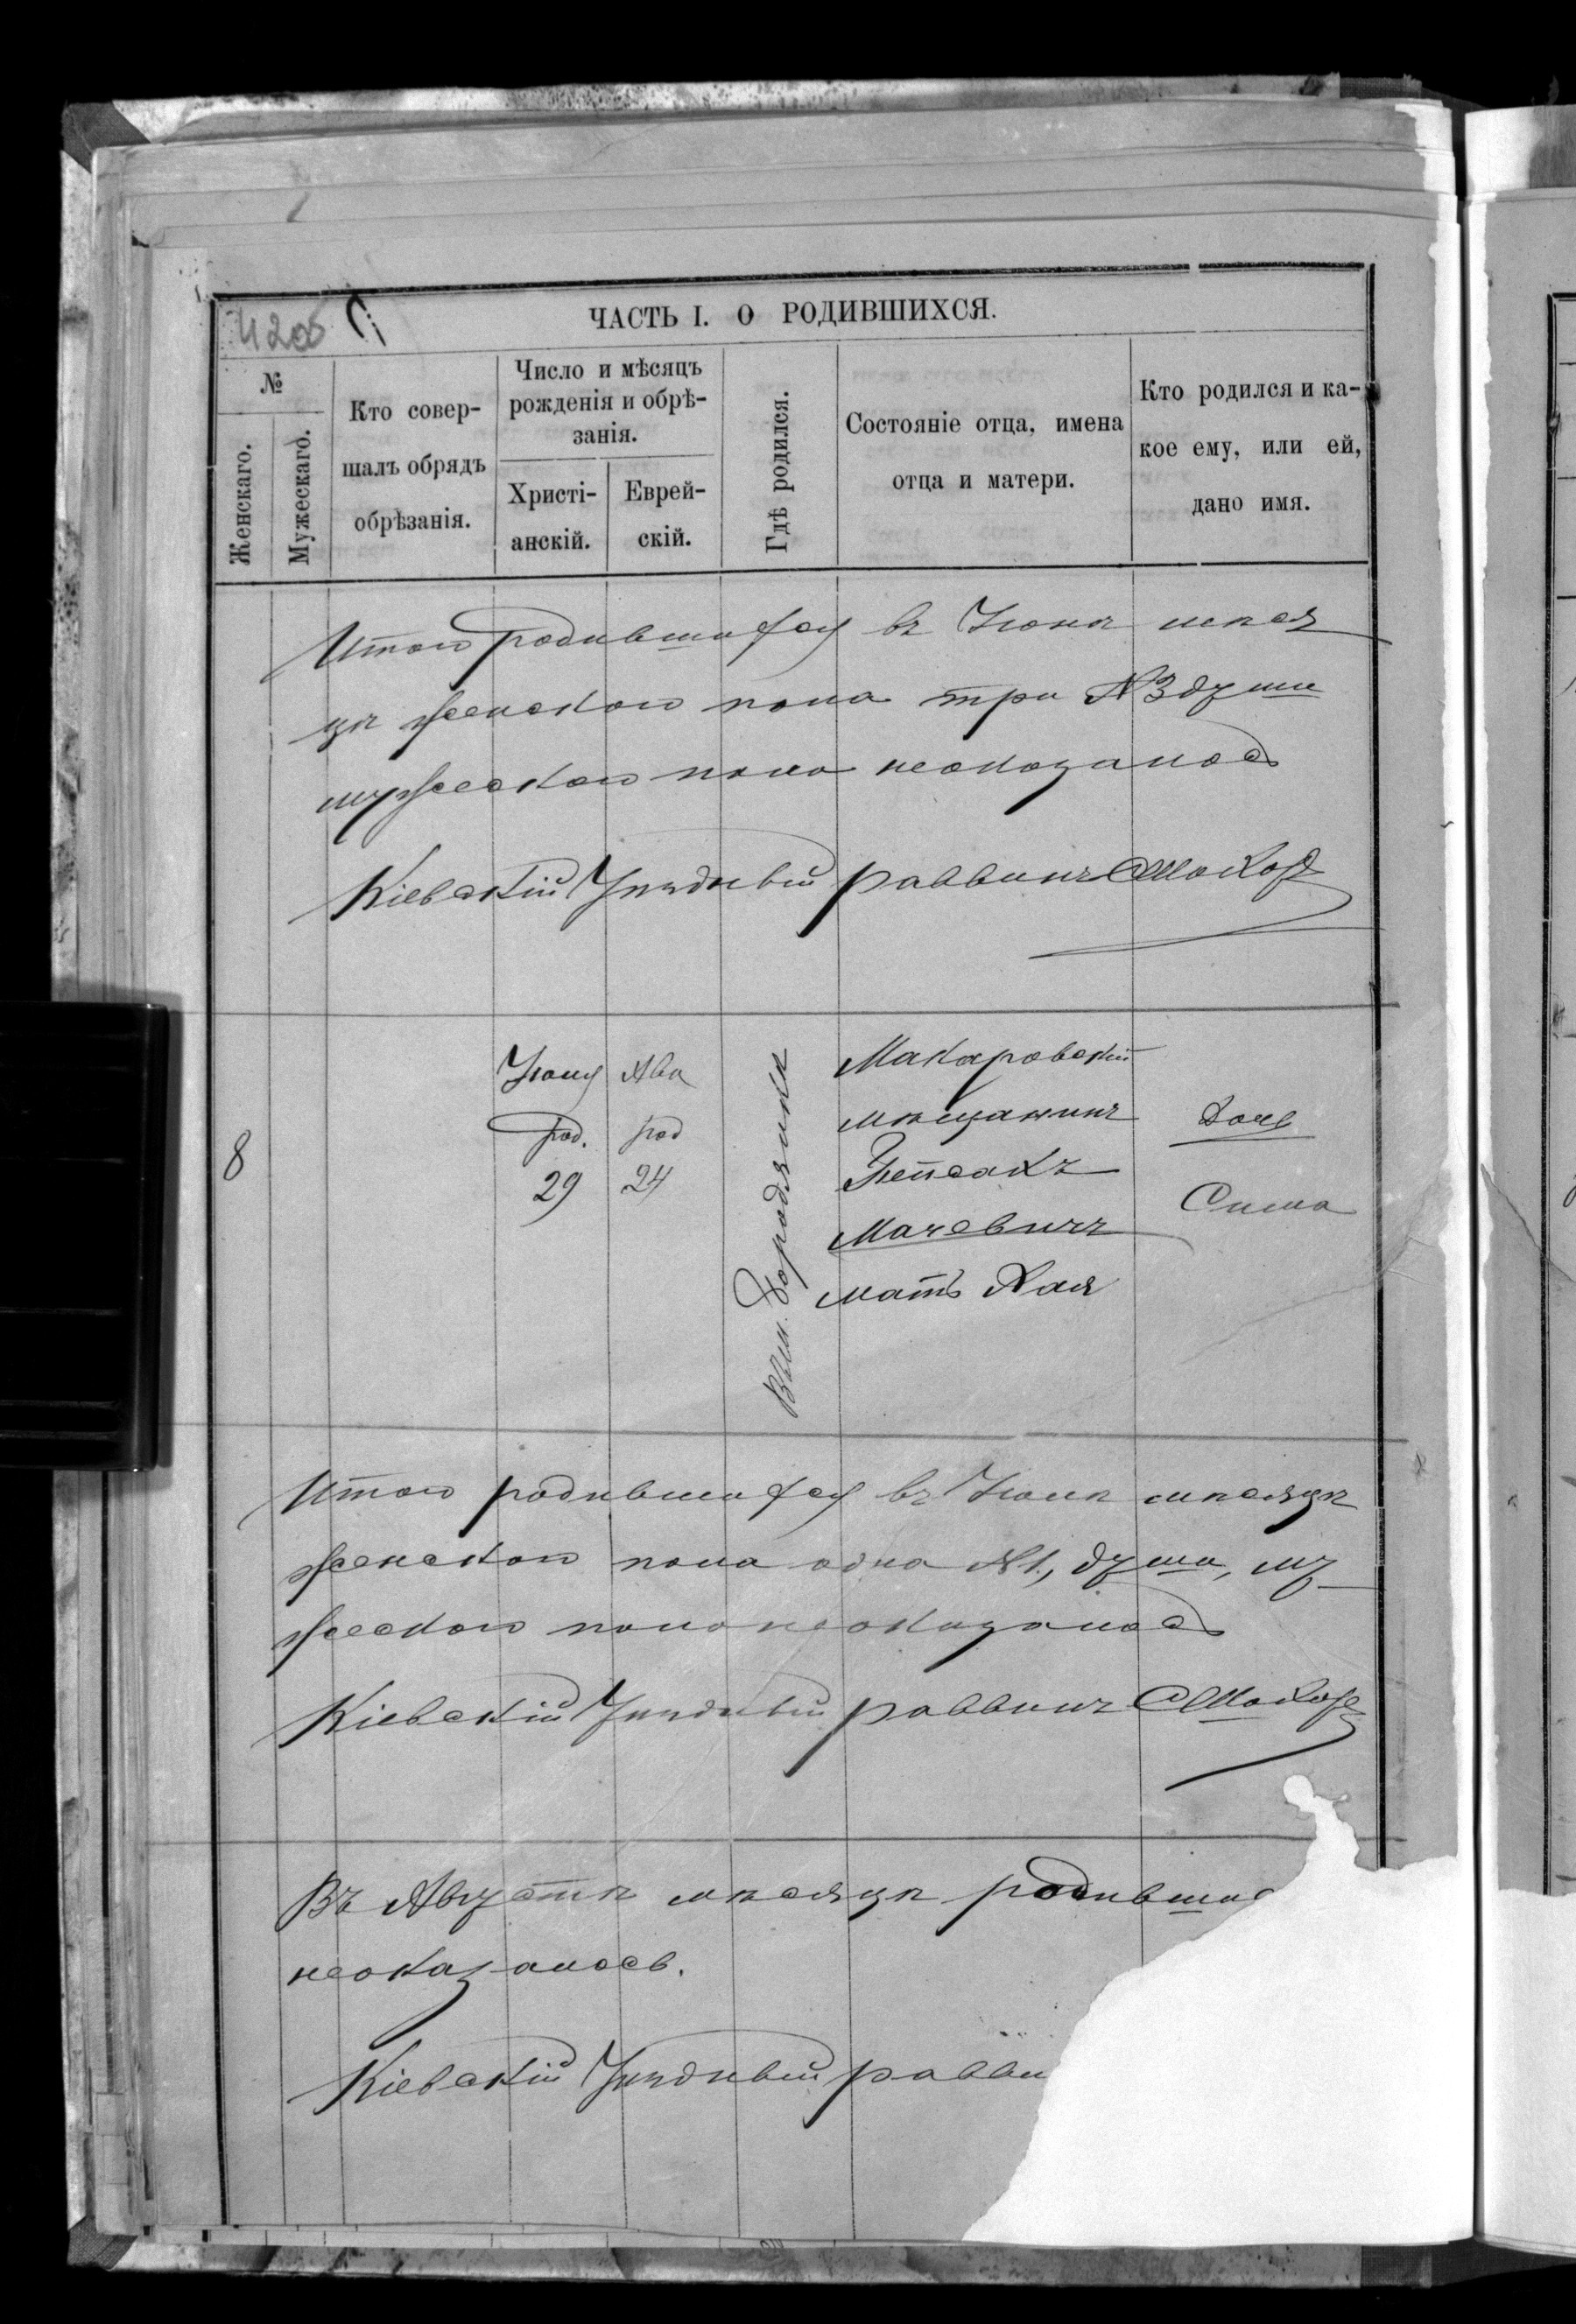 4206
ЧАСТЬ I. О РОДИВШИХСЯ.
№
Женскаго.
Мужескаго.
Кто совер-
шалъ обрядъ
обрѣзанія.
Число и мѣсяцъ
рожденія и обрѣ-
занія.
Христі-
анскій.
Еврей-
скій.
Гдѣ родился.
Состояніе отца, имена
отца и матери.
Кто родился и ка-
кое ему, или ей,
дано имя.
Итого родившихся въ Іюнѣ мѣся
цѣ женского пола три №3 души
мужеского пола неоказалось
Кіевскій Уѣздный раввинъ
8
Іюля
род.
29
Ава
род
24
Въ м. Бородянкѣ
Макаровскій
мѣщанинъ
Пейсахъ
Мачевичъ
мать Хая
Дочь
Сима
Итого родившихся въ Іюлѣ мѣсяцѣ
женского пола одна №1, душа, му
жеского пола неоказалось
Кіевскій Уѣздный раввинъ
Въ Августѣ мѣсяцѣ родивши
неоказалось.
Кіевскій Уѣздный равви